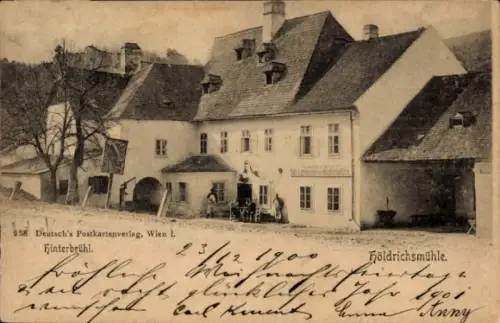 958 Deutsch's Postkartenverlag, Wien I.
Hinterbrühl. Höldrichsmühle.
23/12 1900
Fröhliche Weihnachtsfeiertage
und ein recht glückliches Neues Jahr 1901
wünschen Carl Anna Anny